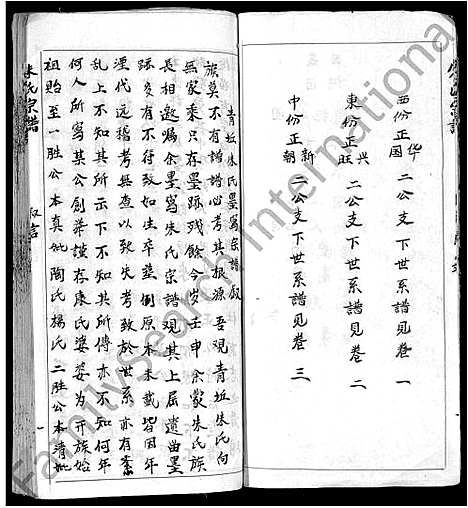 西份正国华二公支下世系譜見卷一
東份正旺兴二公支下世系譜見卷二
中份正朝新二公支下世系譜見卷三
青坵朱氏墨寫宗譜叙
族莫不有譜譜心考其根源吾观青坵朱氏向
無家乘只有墨跡残餘今岁壬申余蒙朱氏族
長相邀嘱余墨寫朱氏宗譜观其上屈遺曲墨
跡多有不符致如生卒塟倒原本未載皆因年
湮代远稽考無查以致失考致於世系亦有紊
乱上不知其所示下不知其所傳亦不知何年
何人所寫某公創業謹存康氏婆婆为开族始
祖貽至一胜公本真妣陶氏楊氏二胜公本清妣
朱氏宗譜
叙言
FamilySearch International